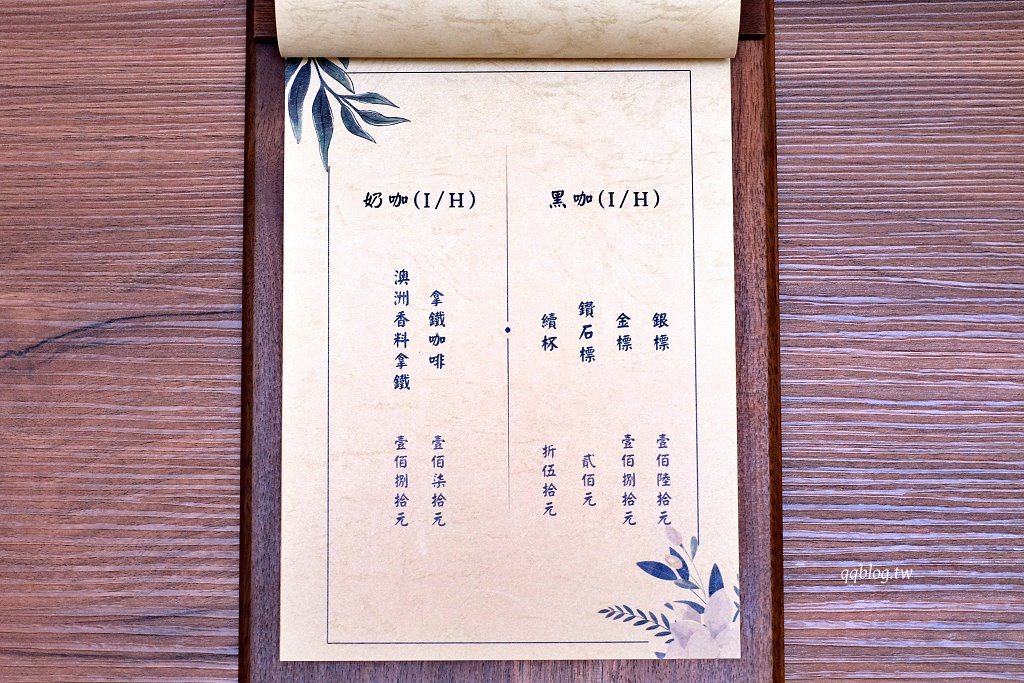 黑咖(I/H)
銀標 壹佰陸拾元
金標 壹佰捌拾元
鑽石標 貳佰元
續杯 折伍拾元
奶咖(I/H)
拿鐵咖啡 壹佰柒拾元
澳洲香料拿鐵 壹佰捌拾元
qqblog.tw